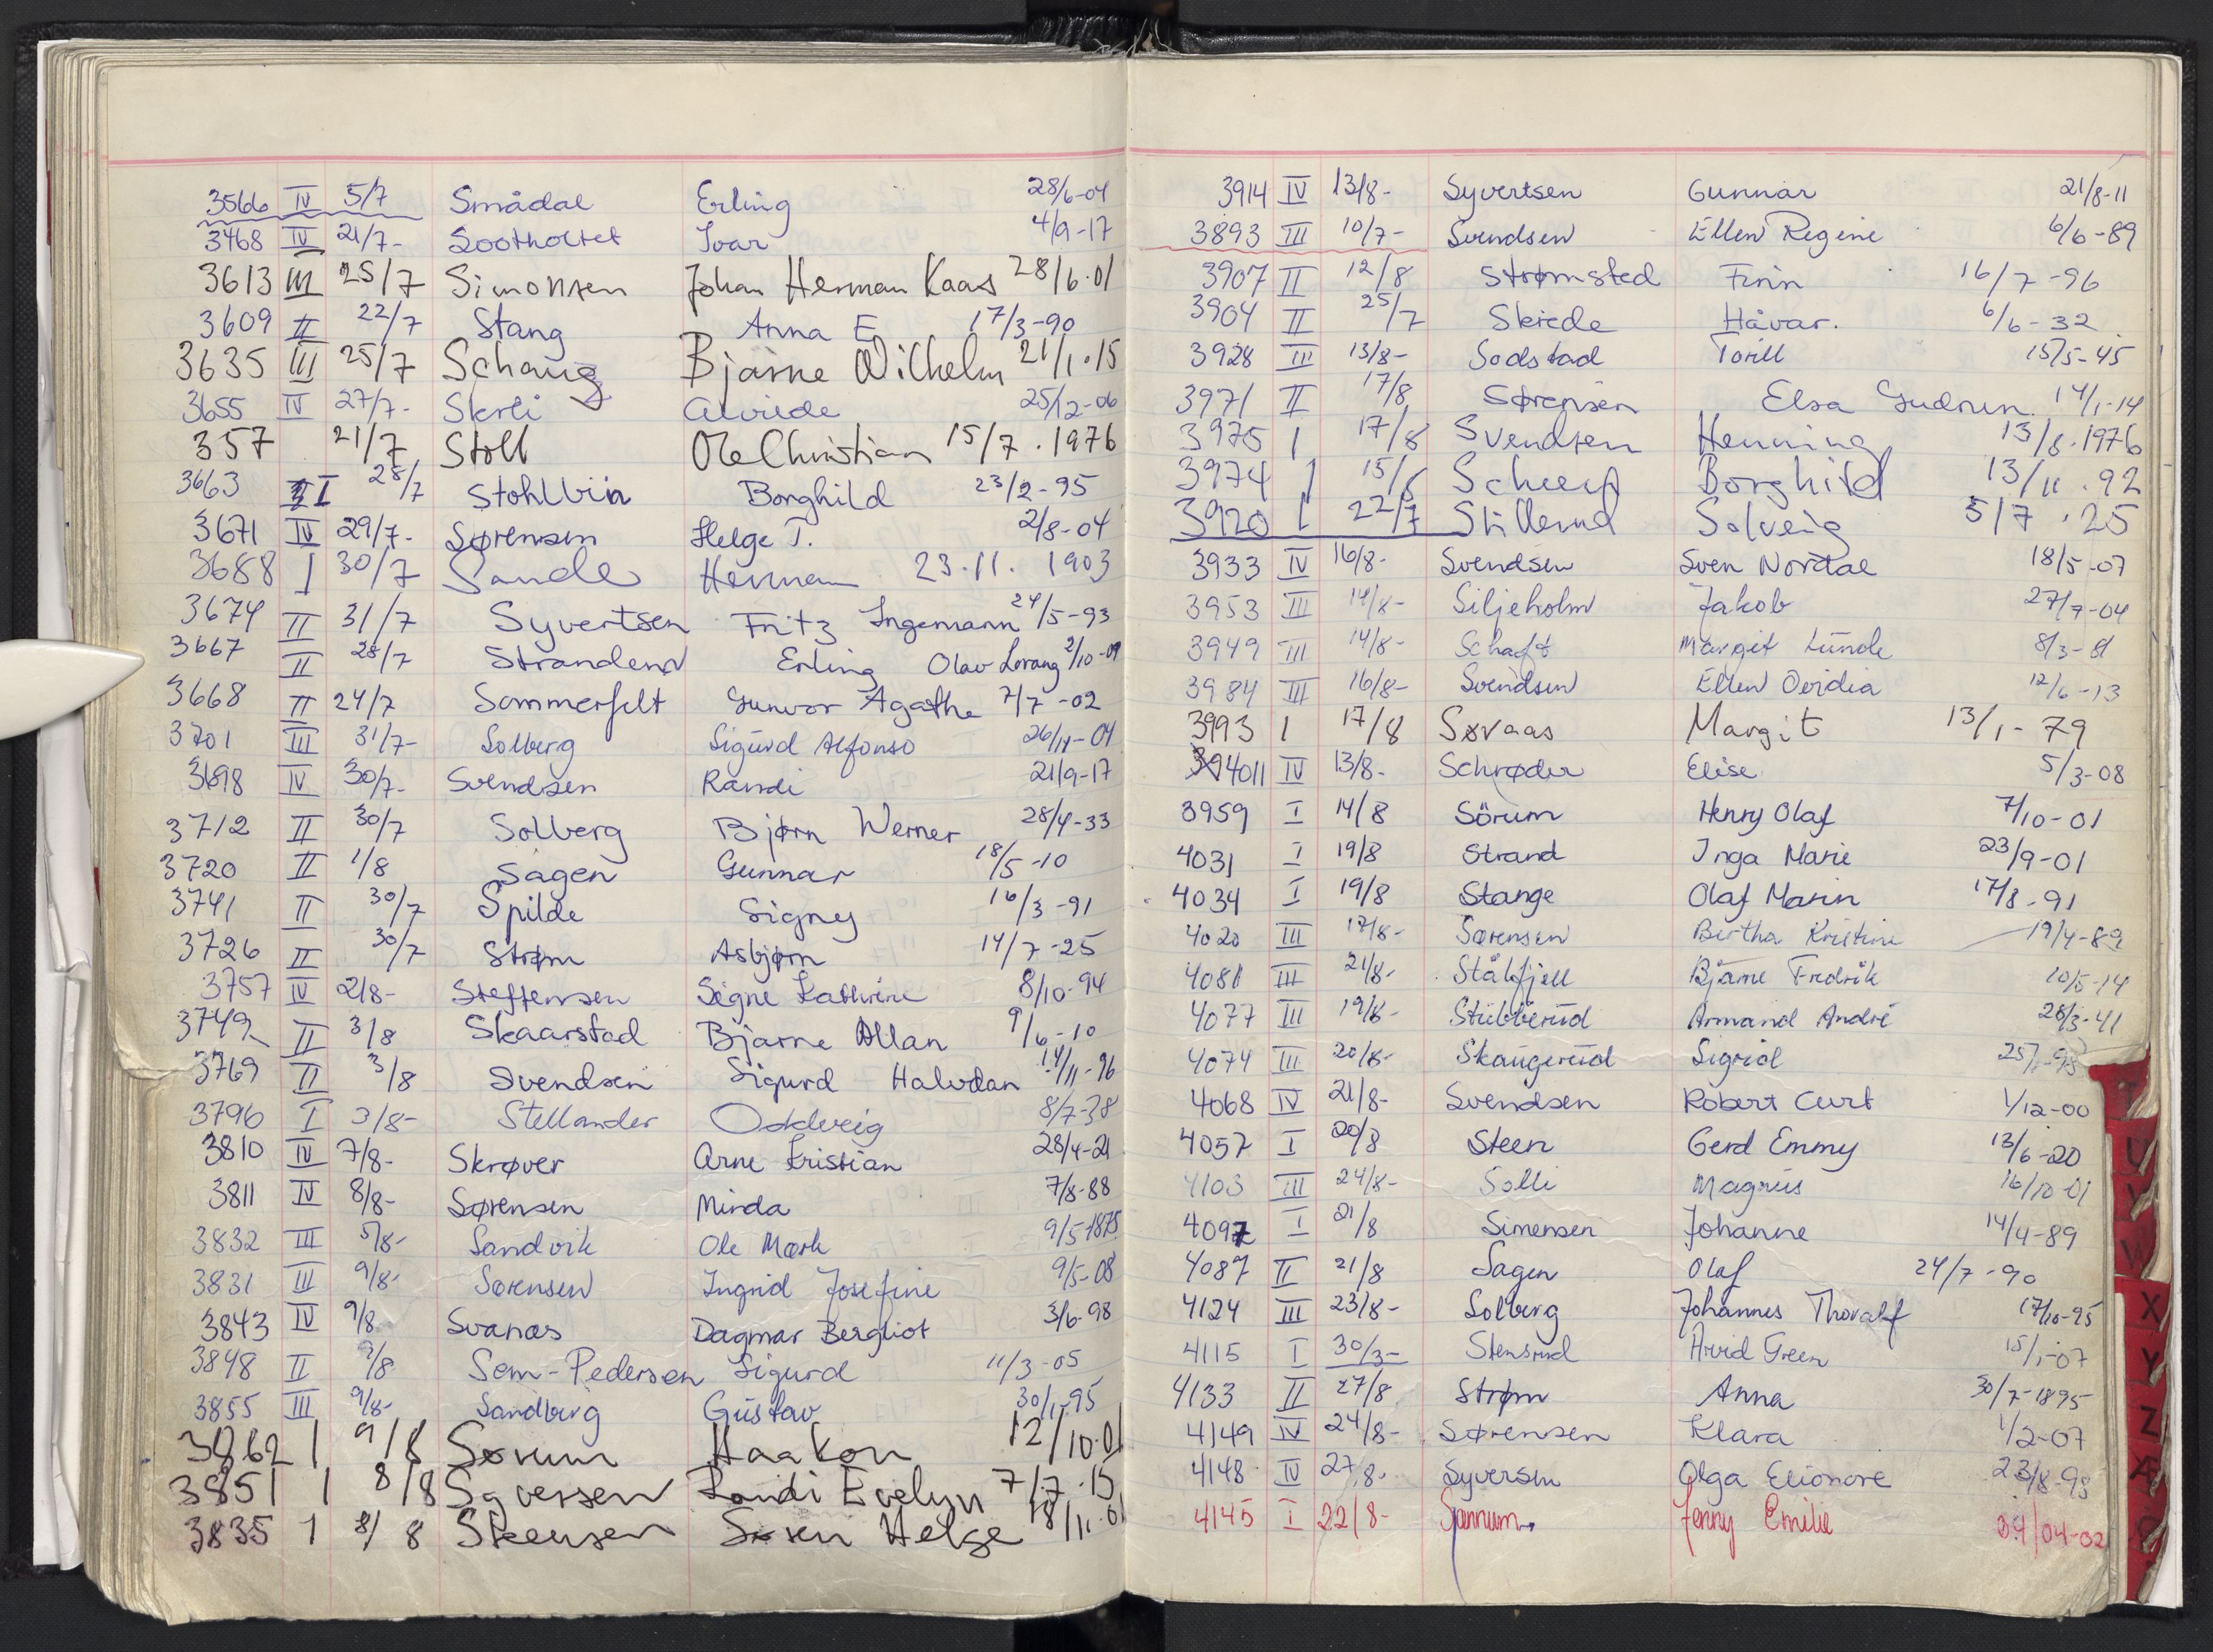 3566 IV 5/7 Smådal Erling 28/6-04
3468 IV 21/7- Sootholtet Ivar 4/9-17
3613 III 25/7 Simonsen Johan Herman Kaas 28/6.01
3609 II 22/7 Stang Anna E 17/3-90
3635 III 25/7 Schaug Bjarne Wilhelm 21/1.15
3655 IV 27/7- Skrli Alvilde 25/12-06
357 21/7 Stoll Ole Christian 15/7.1976
3663 I 28/7 Stohlbin Borghild 23/2-95
3671 IV 29/7- Sørensen Helge T. 2/8-04
3688 I 30/7 Sande Herman 23.11. 1903
3674 II 31/7 Syvertsen Fritz Ingemann 24/5-93
3667 II 28/7 Strandend Erling Olav Lorang 2/10-09
3668 II 24/7 Sommerfelt Gunvor Agathe 7/7-02
3701 III 31/7- Solberg Sigurd Alfonso 26/11-04
3698 IV 30/7- Svendsen Randi 21/9-17
3712 II 30/7 Solberg Bjørn Werner 28/4-33
3720 II 1/8 Sagen Gunnar 18/5-10
3741 II 30/7 Spilde Signy 16/3-91
3726 II 30/7 Strøm Asbjørn 14/7-25
3757 IV 2/8- Steffensen Signe Kathrine 8/10-94
3749 II 3/8 Skaarstad Bjarne Allan 9/6-10
3769 II 3/8 Svendsen Sigurd Halvdan 14/11-96
3796 I 3/8- Stellander Oddveig 8/7-38
3810 IV 7/8- Skrøver Arne Kristian 28/4-21
3811 IV 8/8- Sørensen Minda 7/8-88
3832 III 5/8- Sandvik Ole Mørk 9/5-1875
3831 III 9/8- Sørensen Ingrid Josefine 9/5-08
3843 IV 9/8 Svanæs Dagmar Bergliot 3/6-98
3848 II 9/8 Sem-Pedersen Sigurd 11/3-05
3855 III 9/8- Sandberg Gustav 30/1-95
3862 I 9/8 Sørum Haakon 12/10.01
3851 I 8/8 Syversen Randi Evelyn 7/7.15
3835 I 8/8 Steensen Søren Helge 18/11.01
3914 IV 13/8- Syvertsen Gunnar 21/8-11
3893 III 10/7- Svendsen Ellen Regine 6/6-89
3907 II 12/8 Strømsted Finn 16/7-96
3904 II 25/7 Skrede Håvar. 6/6-32
3928 III 13/8- Sodstad Torill 15/5-45
3971 II 17/8 Sørensen Elsa Gudrun 14/1-14
3975 I 17/8 Svendsen Henning 13/8.1976
3974 I 15/8 Scheep Borghild 13/11.92
3920 I 22/7 Stillerud Solveig 5/7.25
3933 IV 16/8- Svendsen Sven Nordal 18/5-07
3953 III 14/8- Siljeholm Jakob 27/7-04
3949 III 14/8- Schaft Margit Lunde 8/3-81
3984 III 16/8- Svendsen Ellen Ovidia 12/6-13
3993 I 17/8 Søraas Margit 13/1-79
4011 IV 13/8- Schrøder Elise 5/3-08
3959 I 14/8 Sörum Henry Olaf 7/10-01
4031 I 19/8 Strand Inga Marie 23/9-01
4034 I 19/8 Stange Olaf Marin 17/8-91
4020 III 17/8- Sørensen Bertha Kristine 19/4-89
4081 III 21/8- Stålfjell Bjarne Fredrik 10/5-14
4077 III 19/8- Stubberud Armand André 26/3-41
4074 III 20/8- Skaugerud Sigrid
4068 IV 21/8- Svendsen Robert Curt 1/12-00
4057 I 20/8 Steen Gerd Emmy 13/6-20
4103 III 24/8- Solli Magnus 16/10-01
4097 I 21/8 Simensen Johanne 14/4-89
4087 II 21/8 Sagen Olaf 24/7-90
4124 III 23/8- Solberg Johannes Thoralf 17/10-95
4115 I 30/3- Stensrud Arvid Green 15/1-07
4133 II 27/8 Strøm Anna 30/7-1895
4149 IV 24/8- Sørensen Klara 1/2-07
4148 IV 27/8- Syversen Olga Elionore 23/8-98
4145 I 22/8- Sannum Jenny Emilie 04/04-02
U
V
W
X
Y
Z
Æ